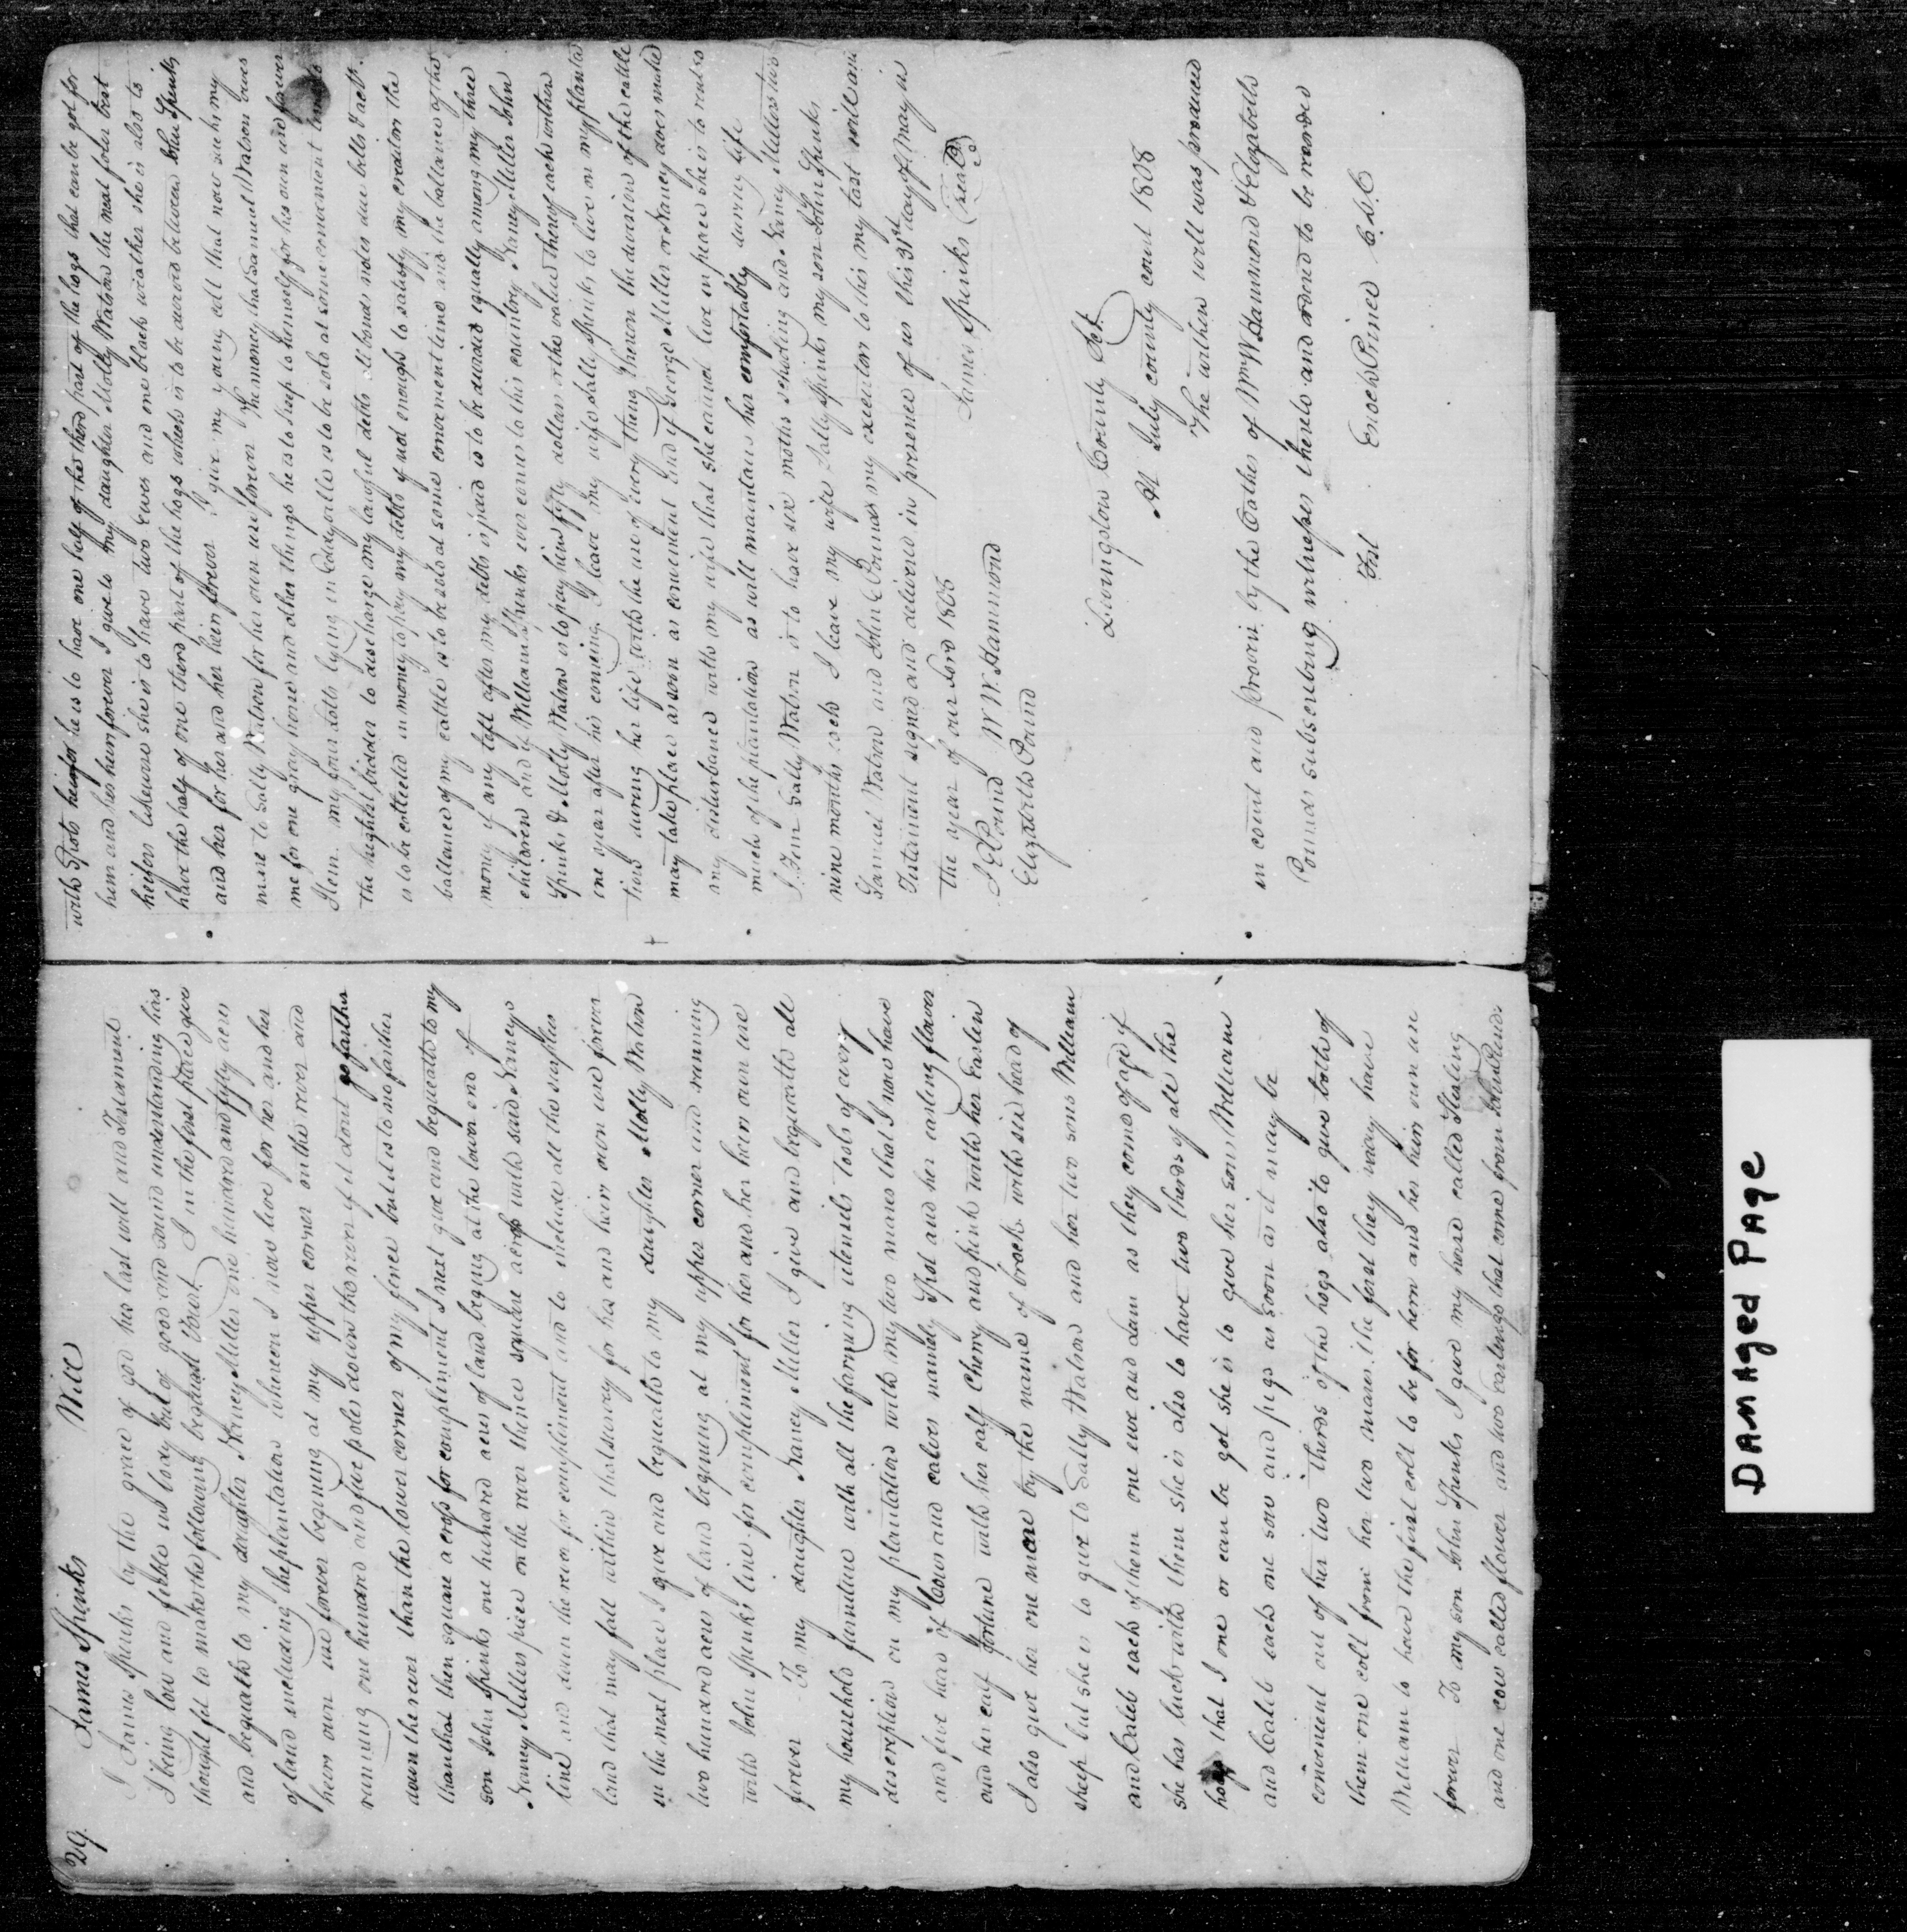 29. James Spinks Will
I James Spinks by the grace of god his last will and Testament
I being low and febble in body but of good and sound understanding has
thought fit to make the following bequest Yount. I in the first place give
and bequath to my daughter Nancy Miller one hundred and fifty acres
of land including the plantation whereon I now live for her and her
heirs own use forever begining at my upper corner on the river and
running one hundred and five poles down the river if it dont go farther
down the river than the lower corner of my fence but it is to no farther
than that then square across for compliment I next give and bequeath to my
son John Spinks one hundred acres of land begining at the lower end of
Nancy Millers piece on the river thence square across with said Nancys
line and down the river for compliment and to include all the surpluss
land that may fall within that survey for his and heirs own use forever
in the next place I give and bequeath to my daughter Molly Watson
two hundred acres of land begining at my upper corner and running
with John Spinks line for compliment for her and her heirs own use
forever To my daughter Nancy Miller I give and bequeath all
my household furniture with all the farming utensils tools of every
description on my plantation with my two mares that I now have
and five head of Cows and calves namely Spot and her earling flower
and her calf fortune with her calf Cherry and pink with her Earlin
I also give her one mare by the name of brock with six head of
sheep but she is to give to Sally Watson and her two sons William
and Caleb each of them one ewe and lam as they come of age if
she has luck with them she is also to have two therds of all the
hogs that I one or can be got she is to give her son William
and Caleb each one sow and pigs as soon as it may be
convenient out of her two therds of the hogs also to give both of
them one colt from her two mares the forst they may have
William to have the first colt to be for hern and her heirs own use
forever To my son John Spinks I give my horse called Starling
and one cow called flower and two earlings that come from John Pinds
with Spots heifer he is to have one half of the therd part of the hogs that can be got for
him and his heirs forever I give to my daughter Molly Watson the next foler that
heifers likewise she is to have two Ewes and one black weather she is also to
have the half of one therd part of the hogs which is to be devived between John Spinks
and her for her and her heirs forever I give my young colt that now sucks my
mare to Sally Watson for her own use forever The money that Samuel Watson owes
me for one gray horse and other things he is to keep to himself for his own use forever
Item. my four lotts lying in Eddyville is to be sold at some convenient time to
the highest bidder to discharge my lawful debts all bonds notes due bills & acct.
is to be collected in money to pay my debts if not enough to satisfy my creditors the
ballance of my cattle is to be sold at some convenient time and the ballance of the
money if any left after my debts is paid is to be devived equally among my three
children and if William Spinks ever comes to this country Nancy Miller John
Spinks & Molly Watson is to pay him fifty dollars or the value thereof each within
one year after his coming. I leave my wife Sally Spinks to live on my planta
tion during her life with the use of every thing thereon the division of the cattle
may take place as soon as convenient And if George Miller or Nancy does make
any disturbance with my wife that she cannot live in peace she is to rent so
much of the plantation as will maintain her comfortably during life
I. Item Sally Watson is to have six moths schooling and Nancy Millers two
nine months each I leave my wife Sally Spinks my son John Spinks
Samuel Watson and John C Pounds my executors to this my last will and
Testament signed and delivered in presence of us this 31st day of May in
the year of our Lord 1808
James Spinks (Seal)
J E Pound W W. Hammond
Elizabeth Pound
Livingston County Sct.
At July county court 1808
The within will was produced
in court and proven by the Oathes of Wm W Hammond & Elizabeth
Pounds subscribing witnesses thereto and ordered to be recorded
Test Enoch Prince C. L. C
DAMAged PAge